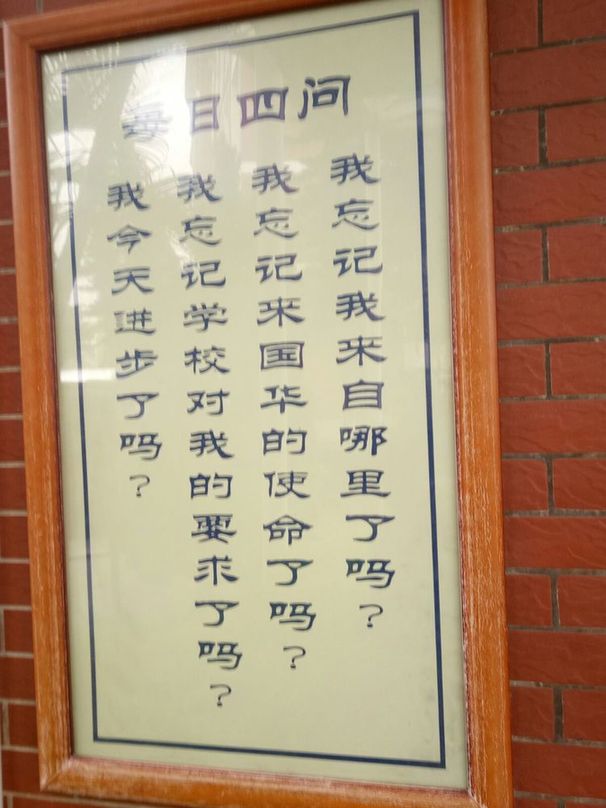 每日四问
我忘记我来自哪里了吗?
我忘记来国华的使命了吗?
我忘记学校对我的要求了吗?
我今天进步了吗?